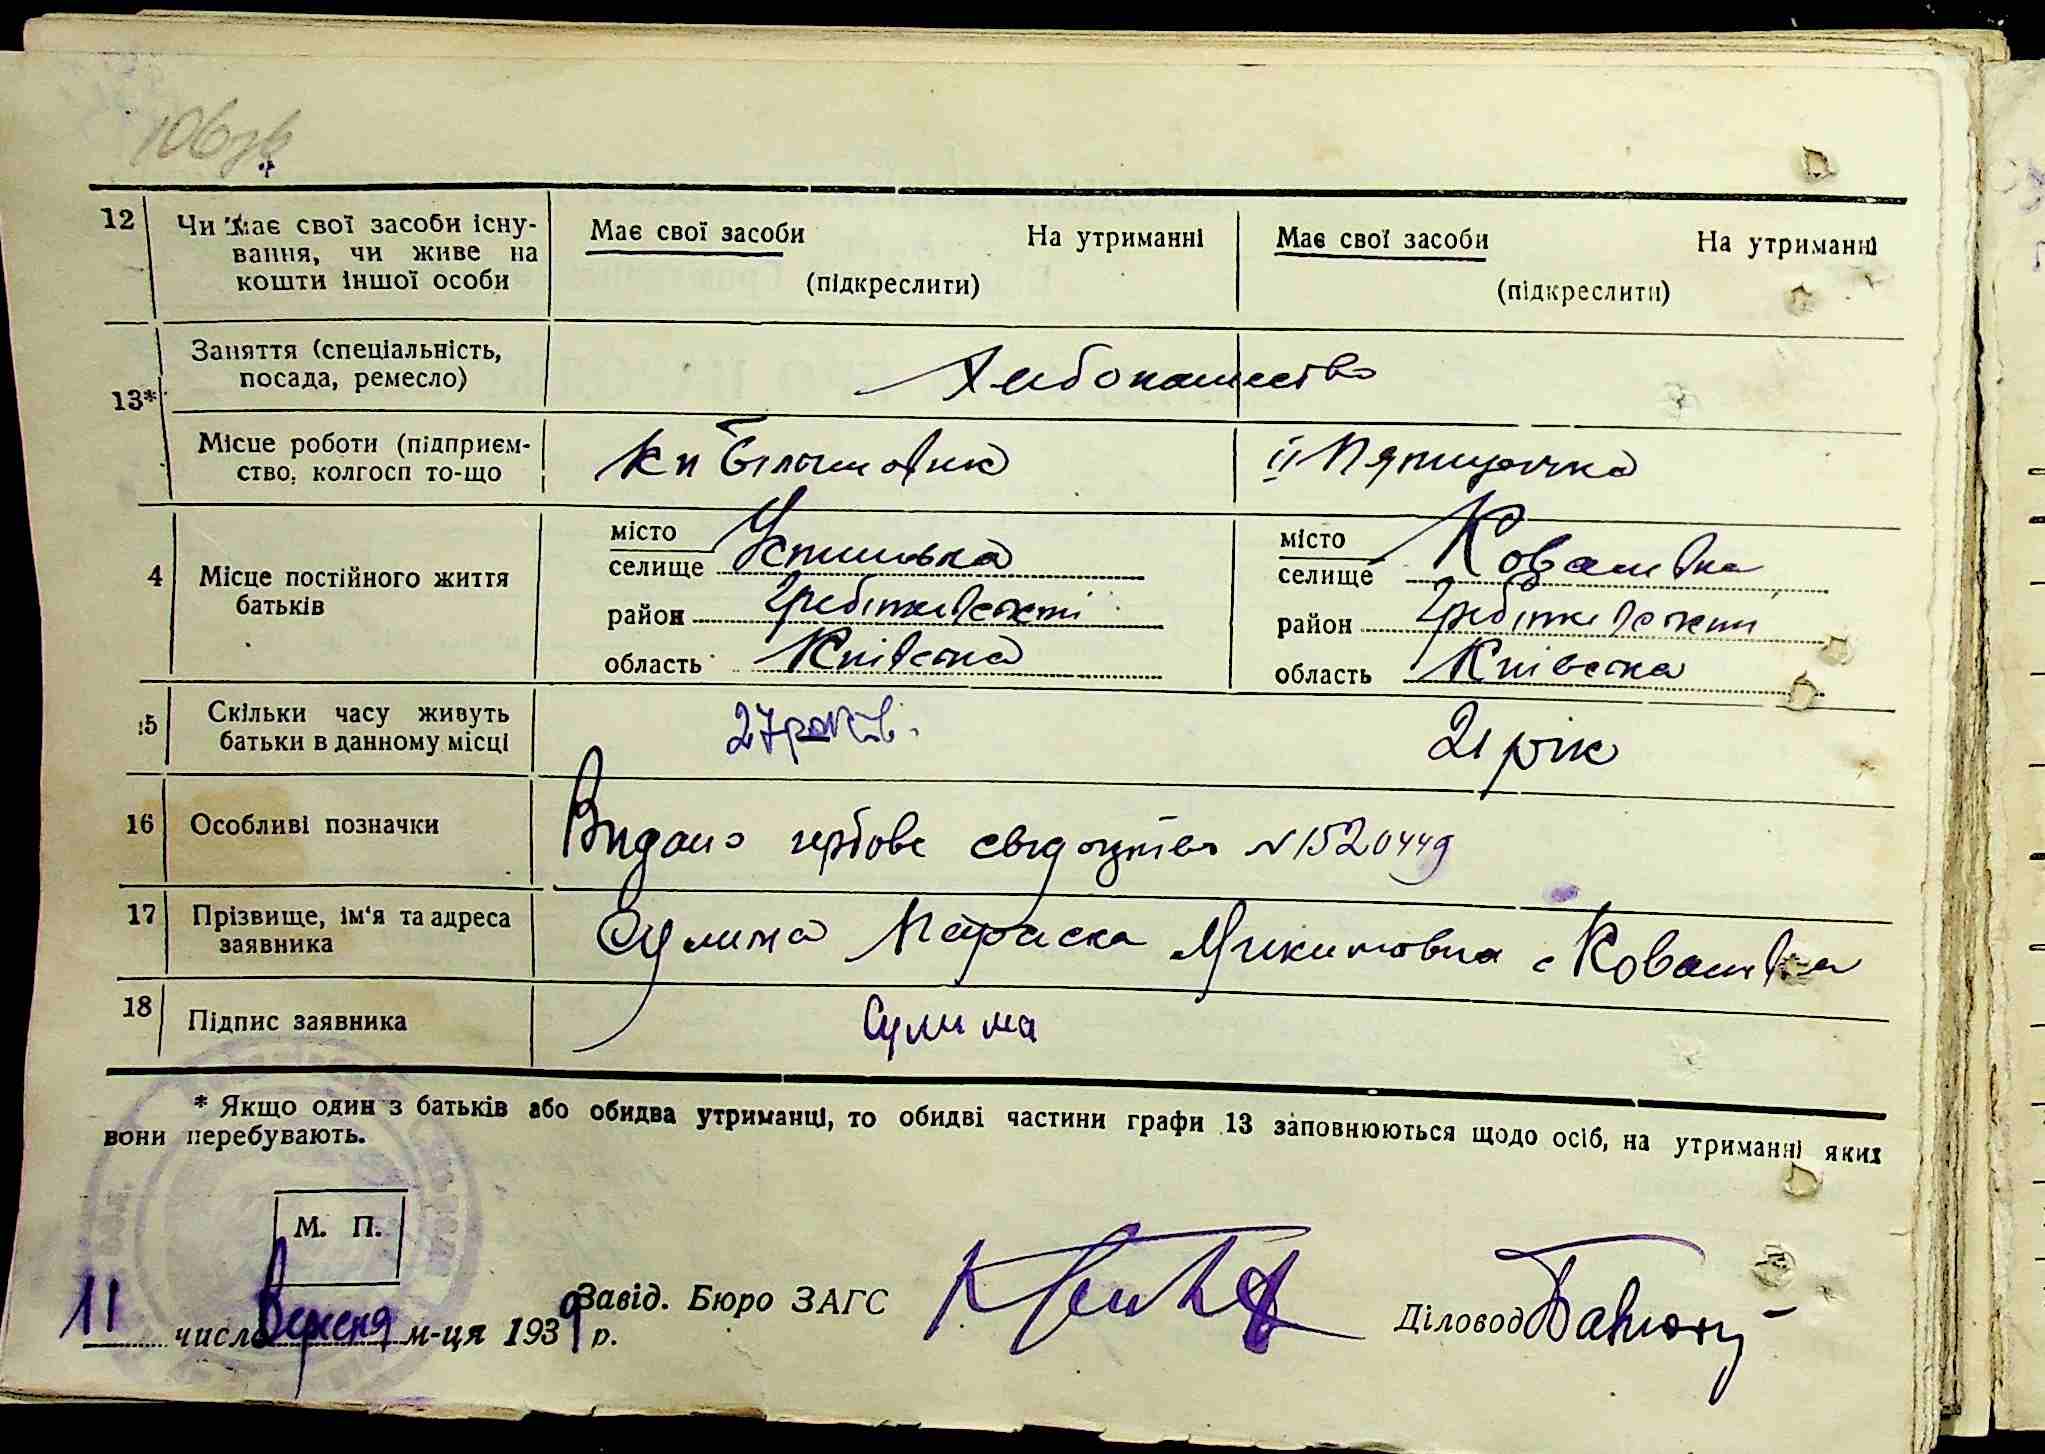 106зв
12 Чи має свої засоби існу-
вання, чи живе на
кошти іншої особи
Має свої засоби На утриманні
(підкреслити)
Має свої засоби На утриманні
(підкреслити)
13* Заняття (спеціальність,
посада, ремесло)
Хлібопашество
Місце роботи (підприєм-
ство, колгосп то-що
Кп Більшовик
ІІ Пятирічка
4 Місце постійного життя
батьків
місто
селище Устимовка
район Гребінківський
область Київська
місто
селище Ковалівка
район Гребінківський
область Київська
15 Скільки часу живуть
батьки в данному місці
27 років.
21 рік
16 Особливі позначки
Видано гербове свідоцтво № 1520449
17 Прізвище, ім'я та адреса
заявника
Сулима Параска Микитовна с Ковалівка
18 Підпис заявника
Сулима
* Якщо один з батьків або обидва утриманці, то обидві частини графи 13 заповнюються щодо осіб, на утриманні яких
вони перебувають.
М. П.
11 число Вересня м-ця 1939 р.
Завід. Бюро ЗАГС
Діловод